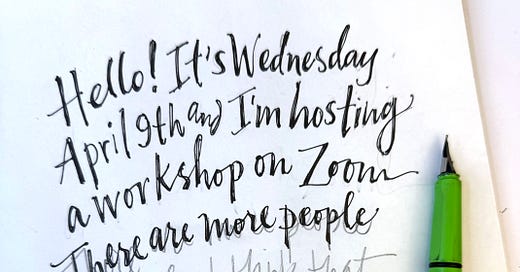 Hello! It's Wednesday
April 9th and I'm hosting
a workshop on Zoom
There are more people
think that